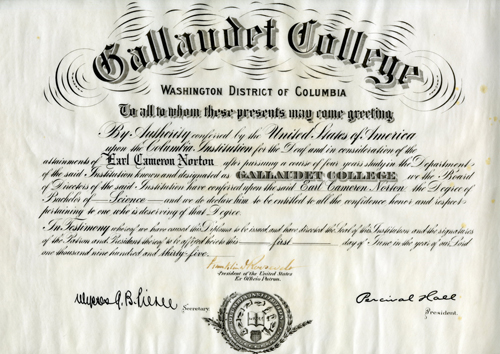 Gallaudet College
Washington District of Columbia
To all to whom these presents may come greeting
By Authority conferred by the United States of America
upon the Columbia Institution for the Deaf and in consideration of the
attainments of Earl Cameron Norton after pursuing a course of four years study in the Department
of the said Institution known and designated as GALLAUDET COLLEGE we the Board
of Directors of the said Institution have conferred upon the said Earl Cameron Norton the Degree of
Bachelor of Science and we do declare him to be entitled to all the confidence honor and respect
pertaining to one who is deserving of that Degree
In Testimony whereof we have caused this Diploma to be issued and have directed the Seal of this Institution and the signatures
of the Patron and President thereof to be affixed hereto this first day of June in the year of our Lord
one thousand nine hundred and thirty-five.
Franklin D Roosevelt
President of the United States
Ex Officio Patron.
Secretary.
Percival Hall
President.